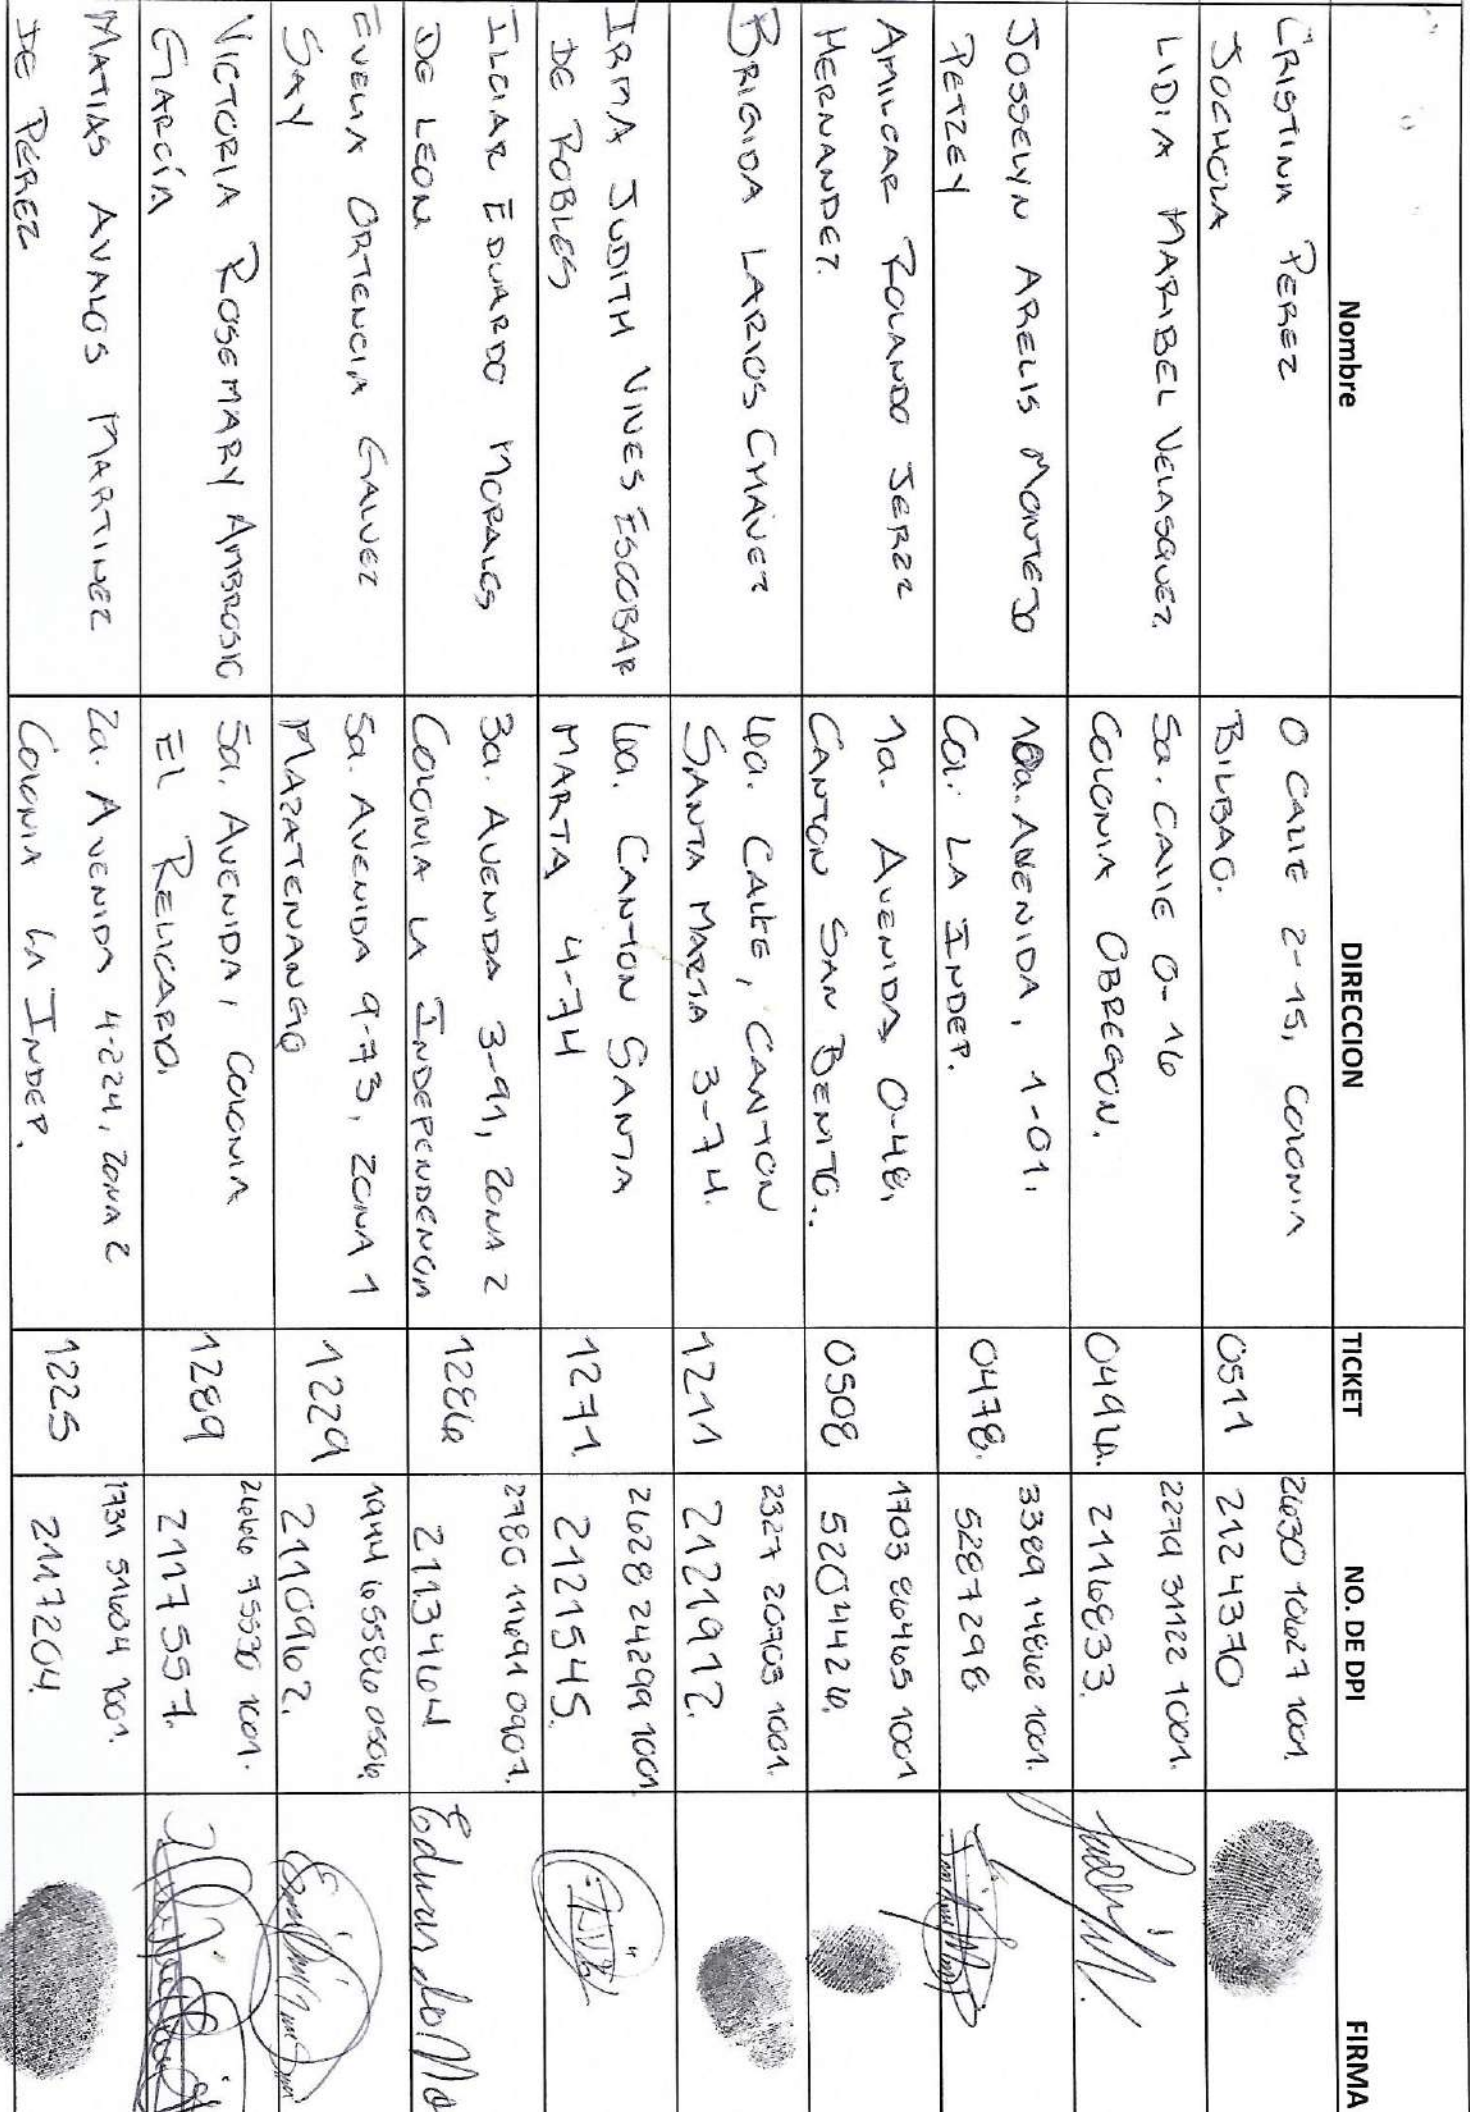 Nombre DIRECCION TICKET NO. DE DPI FIRMA
CRISTINA PEREZ
JOCHOLA
0 CALLE 2-15, COLONIA
BILBAO.
0511
2630 10627 1001.
2124370
LIDIA MARIBEL VELASQUEZ.
5a. CALLE 0-16
COLONIA OBREGON.
0496.
2279 31122 1001.
2116833.
JOSSELYN ARELIS MONTEJO
PETZEY
AVENIDA, 1-01.
Col. LA INDEP.
0478.
3389 14862 1001.
5287298
AMILCAR ROLANDO JEREZ
HERNANDEZ.
1a. AVENIDA 0-48,
CANTON SAN BENITO..
0508
1703 86465 1001
5204426.
BRIGIDA LARIOS CHÁVEZ
6a. CALLE, CANTON
SANTA MARTA 3-74.
1211
2327 20703 1001.
2121912.
IRMA JUDITH VIVES ESCOBAR
DE ROBLES
6a. CANTON SANTA
MARTA 4-74
1271.
2628 24299 1001
2121545.
ILCIAR EDUARDO MORALES
DE LEON
3a. AVENIDA 3-91, ZONA 2
COLONIA LA INDEPENDENCIA
1286
2780 11691 0907.
2113464
Eduardo
EVELIA ORTENCIA GALVEZ
SAY
5a. AVENIDA 9-73, ZONA 1
MAZATENANGO
1229
1944 65586 0506.
2110962.
VICTORIA ROSEMARY AMBROSIO
GARCÍA
5a. AVENIDA, COLONIA
EL RELICARIO.
1289
2666 75530 1001.
2117557.
MATIAS AVALOS MARTINEZ
DE PEREZ
2a. AVENIDA 4-224, ZONA 2
COLONIA LA INDEP.
1225
1731 51634 1001.
2117204.